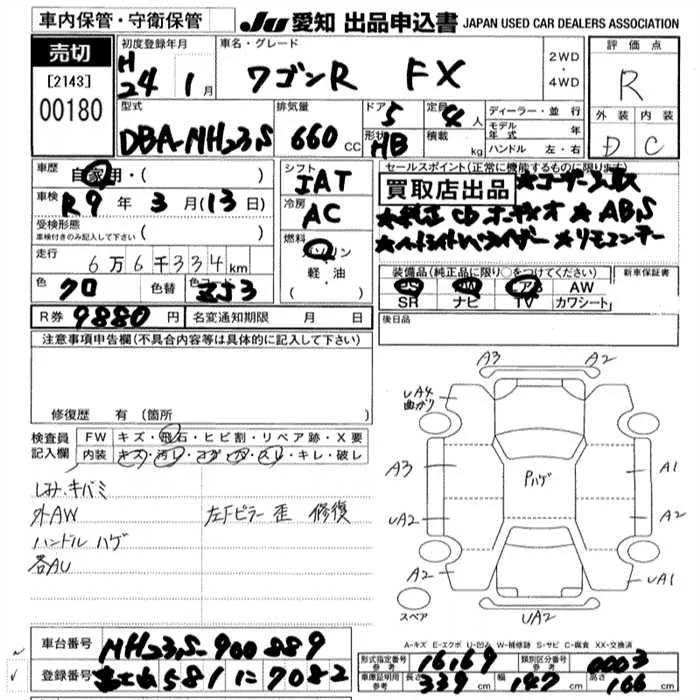 車内保管・守衛保管
JU 愛知 出品申込書 JAPAN USED CAR DEALERS ASSOCIATION
売切
[2143]
00180
初度登録年月
H
24 1月
車名・グレード
ワゴンR FX
2WD
・
4WD
評価点
R
外装 内装
D C
型式
DBA-MH23S
排気量
660 cc
ドア 5
形状 HB
定員 4人
積載 kg
ディーラー・並行
モデル年式 年
ハンドル 左・右
車歴
自家用・( )
車検
R9年3月(13日)
受検形態
車検付きのみ記入して下さい ( )
走行
6万6千334km
色
クロ
色替
色No
ZJ3
シフト
IAT
冷房
AC
燃料
ガソリン
軽・油
( )
セールスポイント(正常に機能するものに限ります)
買取店出品
★純正CDオーディオ ★ABS
★リモコンキー
装備品(純正品に限り○をつけてください)
PS PW エアB AW
SR ナビ TV カワシート
新車保証書
後日品
R券 9880円
名変通知期限 月 日
注意事項申告欄(不具合内容等は具体的に記入して下さい)
修復歴 有(箇所
検査員
記入欄
FW キズ・飛石・ヒビ割・リペア跡・X要
内装 キズ・汚レ・コゲ・穴・スレ・キレ・破レ
しみ、キバミ
外AW 左Fピラー 歪 修復
ハンドル ハゲ
各AU
A3 A2
UA4
曲がり
A3
Pハゲ
A1
UA2
A2
A2
UA1
UA2
スペア
A-キズ E-エクボ U-凹み W-補修跡 S-サビ C-腐食 XX-交換済
車台番号
MH23S-900889
登録番号
581 に 7082
形式指定番号
参考
16169
類別区分番号
参考
0003
車庫証明用
参考
長さ 339cm
幅 147cm
高さ 166cm